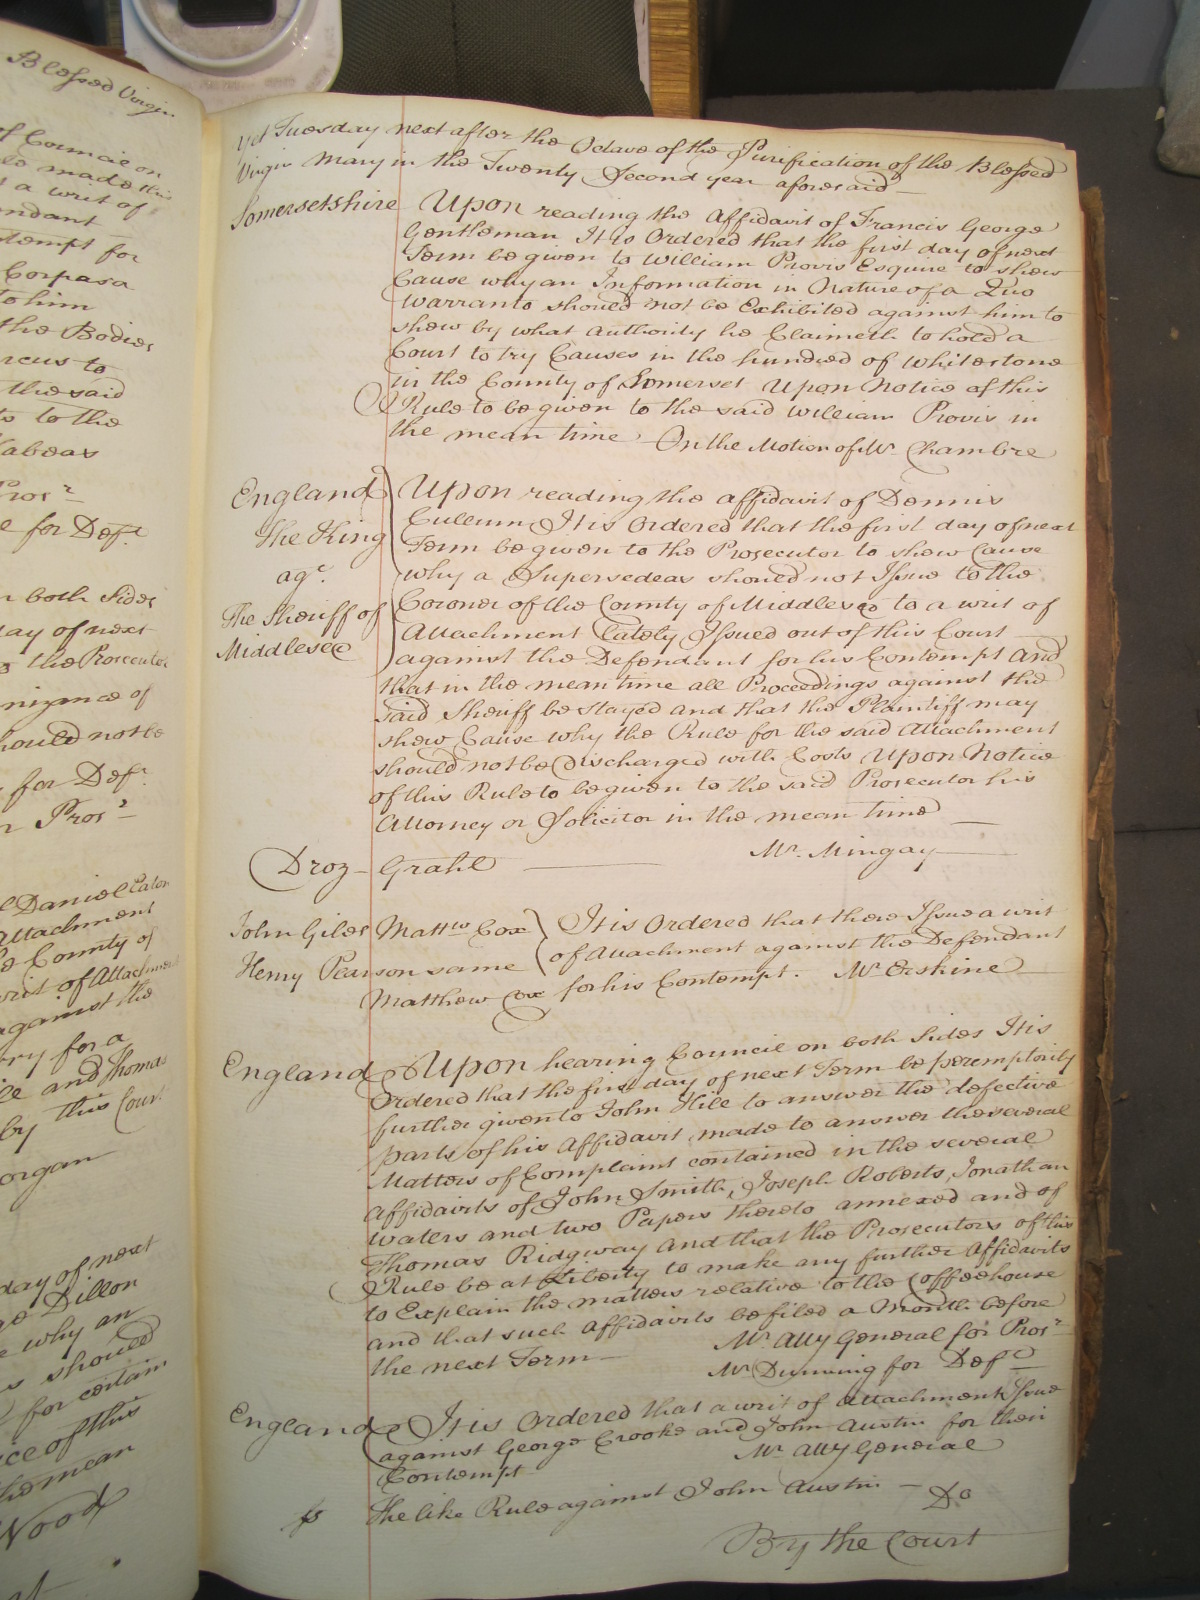 Blessed Virgin
of Council on
made this
a writ of
endant
tempt for
Corpus a
to him
the Bodies
rcus to
the said
to the
Habeas
Prosr
for Deft
n both Sides
day of next
the Prosecutor
nizance of
hould not be
for Deft
Prosr
Daniel Eaton
attachment
County of
writ of Attachment
against the
ry for a
and Thomas
by this Court
organ
day of next
Dillon
why an
s should
for certain
ice of this
the mean
Wood
Yet Tuesday next after the Octave of the Purification of the Blessed
Virgin Mary in the Twenty Second year aforesaid
Somersetshire Upon reading the Affidavit of Francis George
Gentleman It is Ordered that the first day of next
Term be given to William Provis Esquire to shew
Cause why an Information in Nature of a Quo
Warranto should not be Exhibited against him to
shew by what Authority he Claimeth to hold a
Court to try Causes in the hundred of Whitestone
in the County of Somerset Upon Notice of this
Rule to be given to the said William Provis in
the mean time On the Motion of Mr. Chambre
England Upon reading the affidavit of Dennis
Cullum It is Ordered that the first day of next
The King Term be given to the Prosecutor to shew Cause
agt. why a Supersedeas should not Issue to the
The Sheriff of Coroner of the County of Middlesex to a writ of
Attachment Lately Issued out of this Court
Middlesex against the Defendant for his Contempt and
that in the mean time all Proceedings against the
said Sheriff be stayed and that the Plaintiff may
shew Cause why the Rule for the said Attachment
should not be Discharged with Costs Upon Notice
of this Rule to be given to the said Prosecutor his
Attorney or Solicitor in the mean time
Mr. Mingay
Droz - Grahl
John Giles Mattw Cox It is Ordered that there Issue a writ
Henry Pearson same of Attachment against the Defendant
Matthew Cox for his Contempt. Mr. Erskine
England Upon hearing Council on both Sides It is
Ordered that the first day of next Term be peremptorily
further given to John Hill to answer the defective
parts of his Affidavit made to answer the several
Matters of Complaint contained in the several
Affidavits of John Smith, Joseph Roberts, Jonathan
Waters and two Papers thereto annexed and of
Thomas Ridgway And that the Prosecutors of this
Rule be at Liberty to make any further Affidavits
to Explain the matters relative to the Coffeehouse
and that such Affidavits be filed a Month before
the next Term Mr. Atty General for Prosr
Mr. Dunning for Deft
England It is Ordered that a writ of Attachment Issue
against George Crooke and John Austin for their
Contempt Mr. Atty General
fs The like Rule against John Austin - Do
By the Court